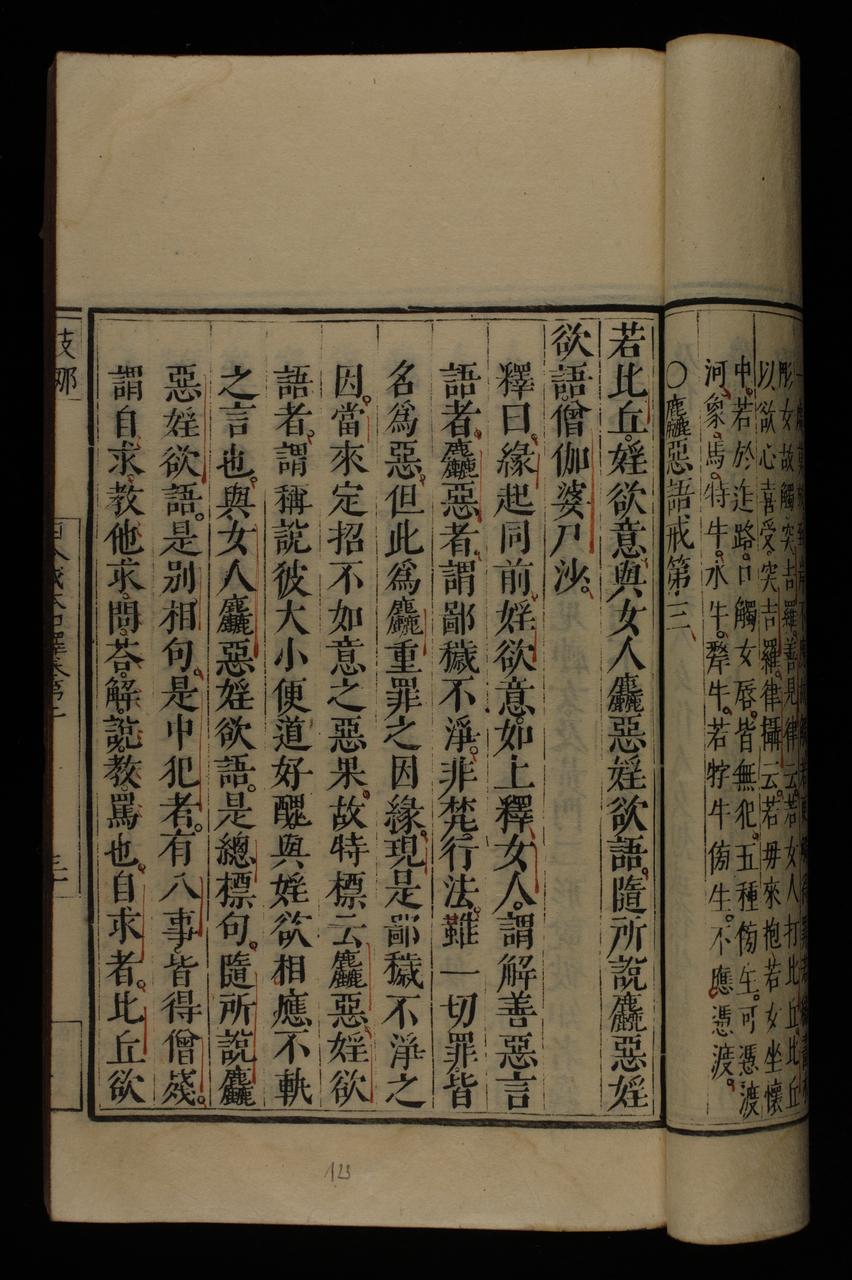 形女故觸突吉羅善見律云若女人打比丘比丘
以欲心喜受突吉羅律攝云若毋來抱若女坐懷
中若於迮路口觸女唇皆無犯五種傍生可憑渡
河象馬特牛水牛犛牛若牸牛傍生不應憑渡
○麤惡語戒第三
若比丘婬欲意與女人麤惡婬欲語隨所說麤惡婬
欲語僧伽婆尸沙
釋曰緣起同前婬欲意如上釋女人謂解善惡言
語者麤惡者謂鄙穢不淨非梵行法雖一切罪皆
名為惡但此為麤重罪之因緣現是鄙穢不淨之
因當來定招不如意之惡果故特標云麤惡婬欲
語者謂稱說彼大小便道好醜與婬欲相應不軌
之言也與女人麤惡婬欲語是總標句隨所說麤
惡婬欲語是別相句是中犯者有八事皆得僧殘
謂自求教他求問荅解說教罵也自求者比丘欲
支那
123